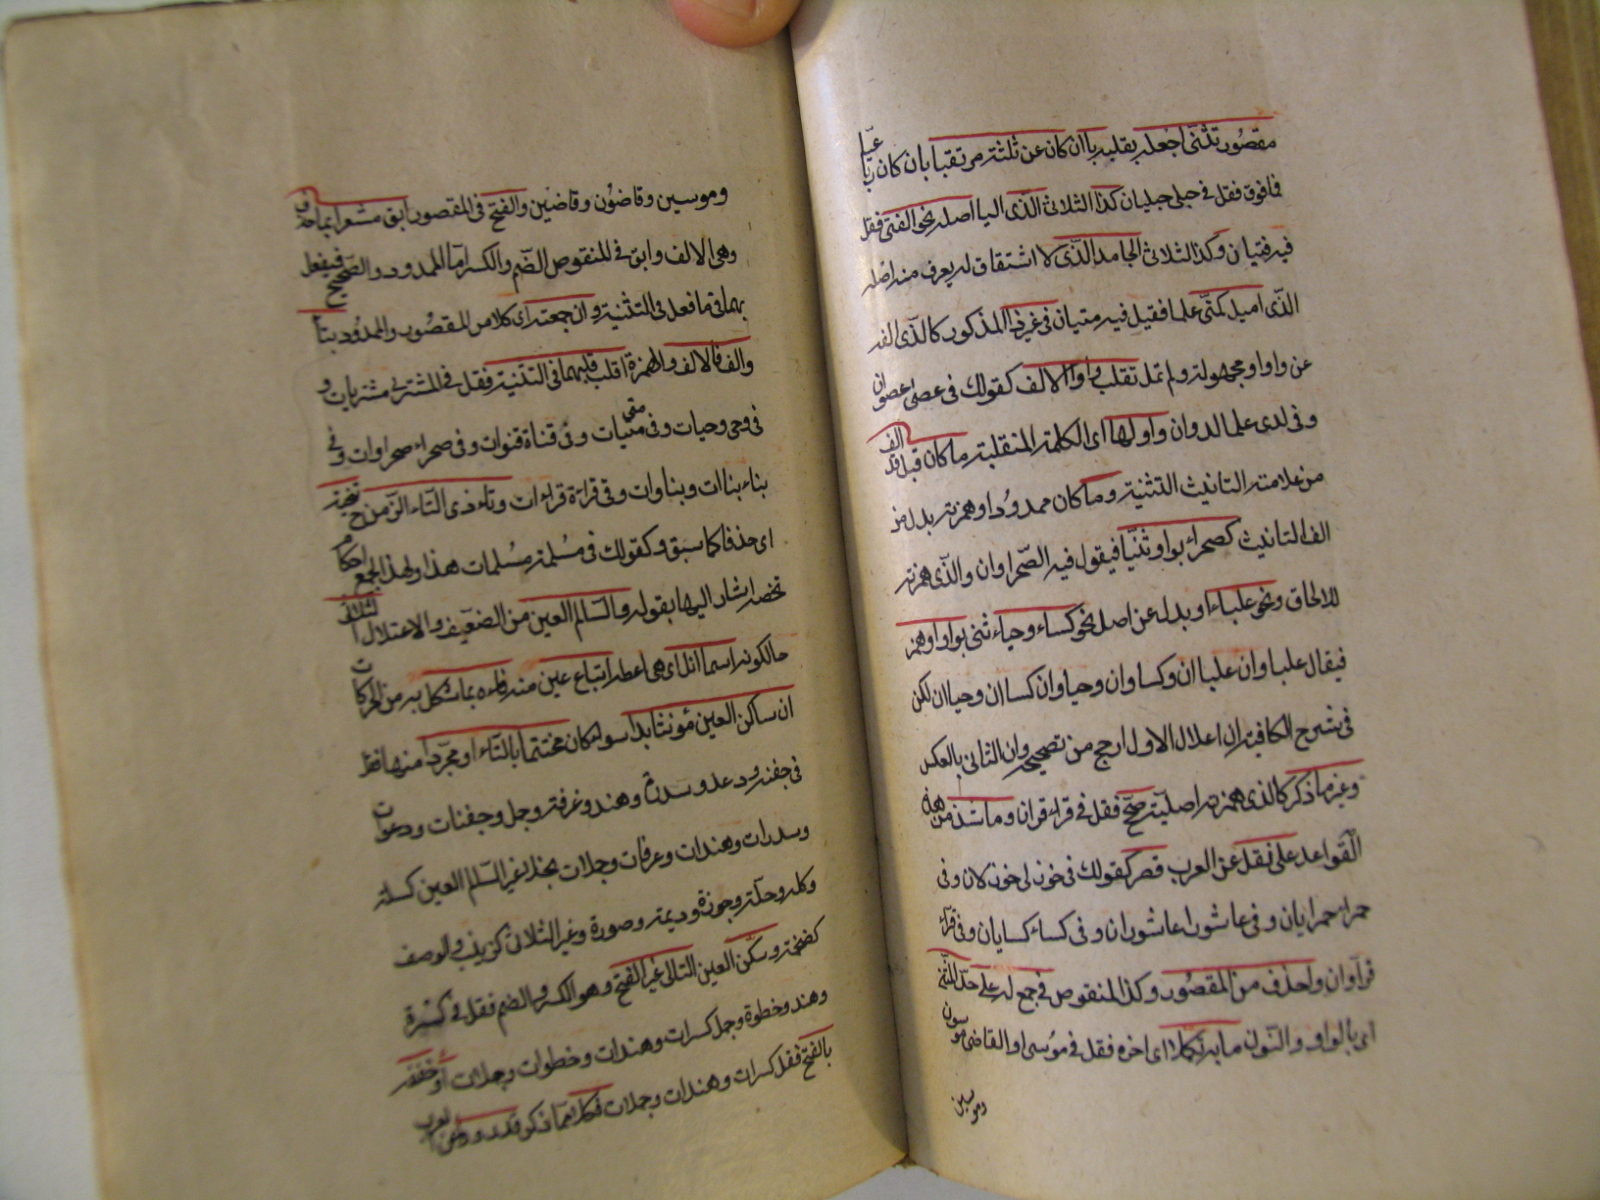 مقصور تثنى اجعله بقلبه يا ان كان عن ثلثة مرتقيا بان كان رباعيا
فما فوق فقل في حبلى حبليان كذا الثلاثى الذى اليا اصله نحو الفتى فقل
فيه فتيان وكذا الثلاثى الجامد الذى لا اشتقاق له يعرف منه اصله
الذى اميل كمتى علما فقيل فيه متيان فى غير ذا المذكور كالذى الفه
عن واو او مجهولة ولم تمل تقلب واوا الالف كقولك فى عصى عصوان
وفى لدى علما لدوان واولها اى الكلمة المنقلبة ما كان قبل قد الف
من علامة التانيث التثنية وما كان ممدودا وهمزته بدل من
الف التانيث كصحراء بواو ثنيا فيقول فيه الصحراوان والذى همزته
للالحاق ونحو علباء او بدله عن اصل نحو كساء وحياء ثنى بواو او همز
فيقال علباوان علباان وكساوان وحياوان كساان وحياان لكن
فى شرح الكافية ان اعلال الاول ارجح من تصحيحه وان الثانى بالعكس
وغير ما ذكر كالذى همزته اصلية صحح فقل فى قراء قراان وما شذ من هذه
القواعد على نقل عن العرب قصر كقولك فى خوزلى خوزلان وفى
حمراء حمرايان وفى عاشورا عاشوران وفى كساء كسايان وفى قراء
قراوان واحذف من المقصور وكذا المنقوص فى جمع له على حد المثنى
اى بالواو والنون ما به تكملا اى اخره فقل فى موسى او القاضى موسون
وموسين
وموسين وقاضون وقاضين والفتح فى المقصور ابق مشعرا بما حذف
وهى الالف وابق فى المنقوص الضم والكسر اما الممدود والصحيح فيفعل
بهما فى ما فعل فى التثنية وان جمعته اى كلا من المقصور والممدود بتا
والف فالالف والهمزة اقلب قلبهما فى التثنية فقل فى المشترى مشتريات و
فى وحى وحيات وفى متى متيات وفى قناة قنوات وفى صحراء صحراوات وفى
بناء بناات وبناوات وفى قراءة قراءات وتاء ذى التاء الزمن تنحية
اى حذفا كما سبق وكقولك فى مسلمة مسلمات هذا ولهذا الجمع احكام
تخصه اشار اليها بقوله والسالم العين من الضعيف والاعتلال الثلاثى
حالكونه اسما انل اى هى اعطه اتباع عين منه فاءه بما شكل به من الحركات
ان ساكن العين مؤنثا بدا سواء كان مختتما بالتاء او مجردا منها فقل
فى جفنة ودعد وسدرة وهند وغرفة وجمل وجفنات ودعدات
وسدرات وهندات وغرفات وجملات بخلاف غير السالم العين كسلة
وكلة وحلة وجوزة وديمة وصورة وغير الثلاثى كزينب والوصف
كضخمة وسكن العين التالى غير الفتح وهو الكسر والضم فقل فى كسرة
وهند وخطوة وجمل كسرات وهندات وخطوات وجملات او خففه
بالفتح فقل كسرات وهندات وجملات فكلا مما ذكر قد رووا عن العرب